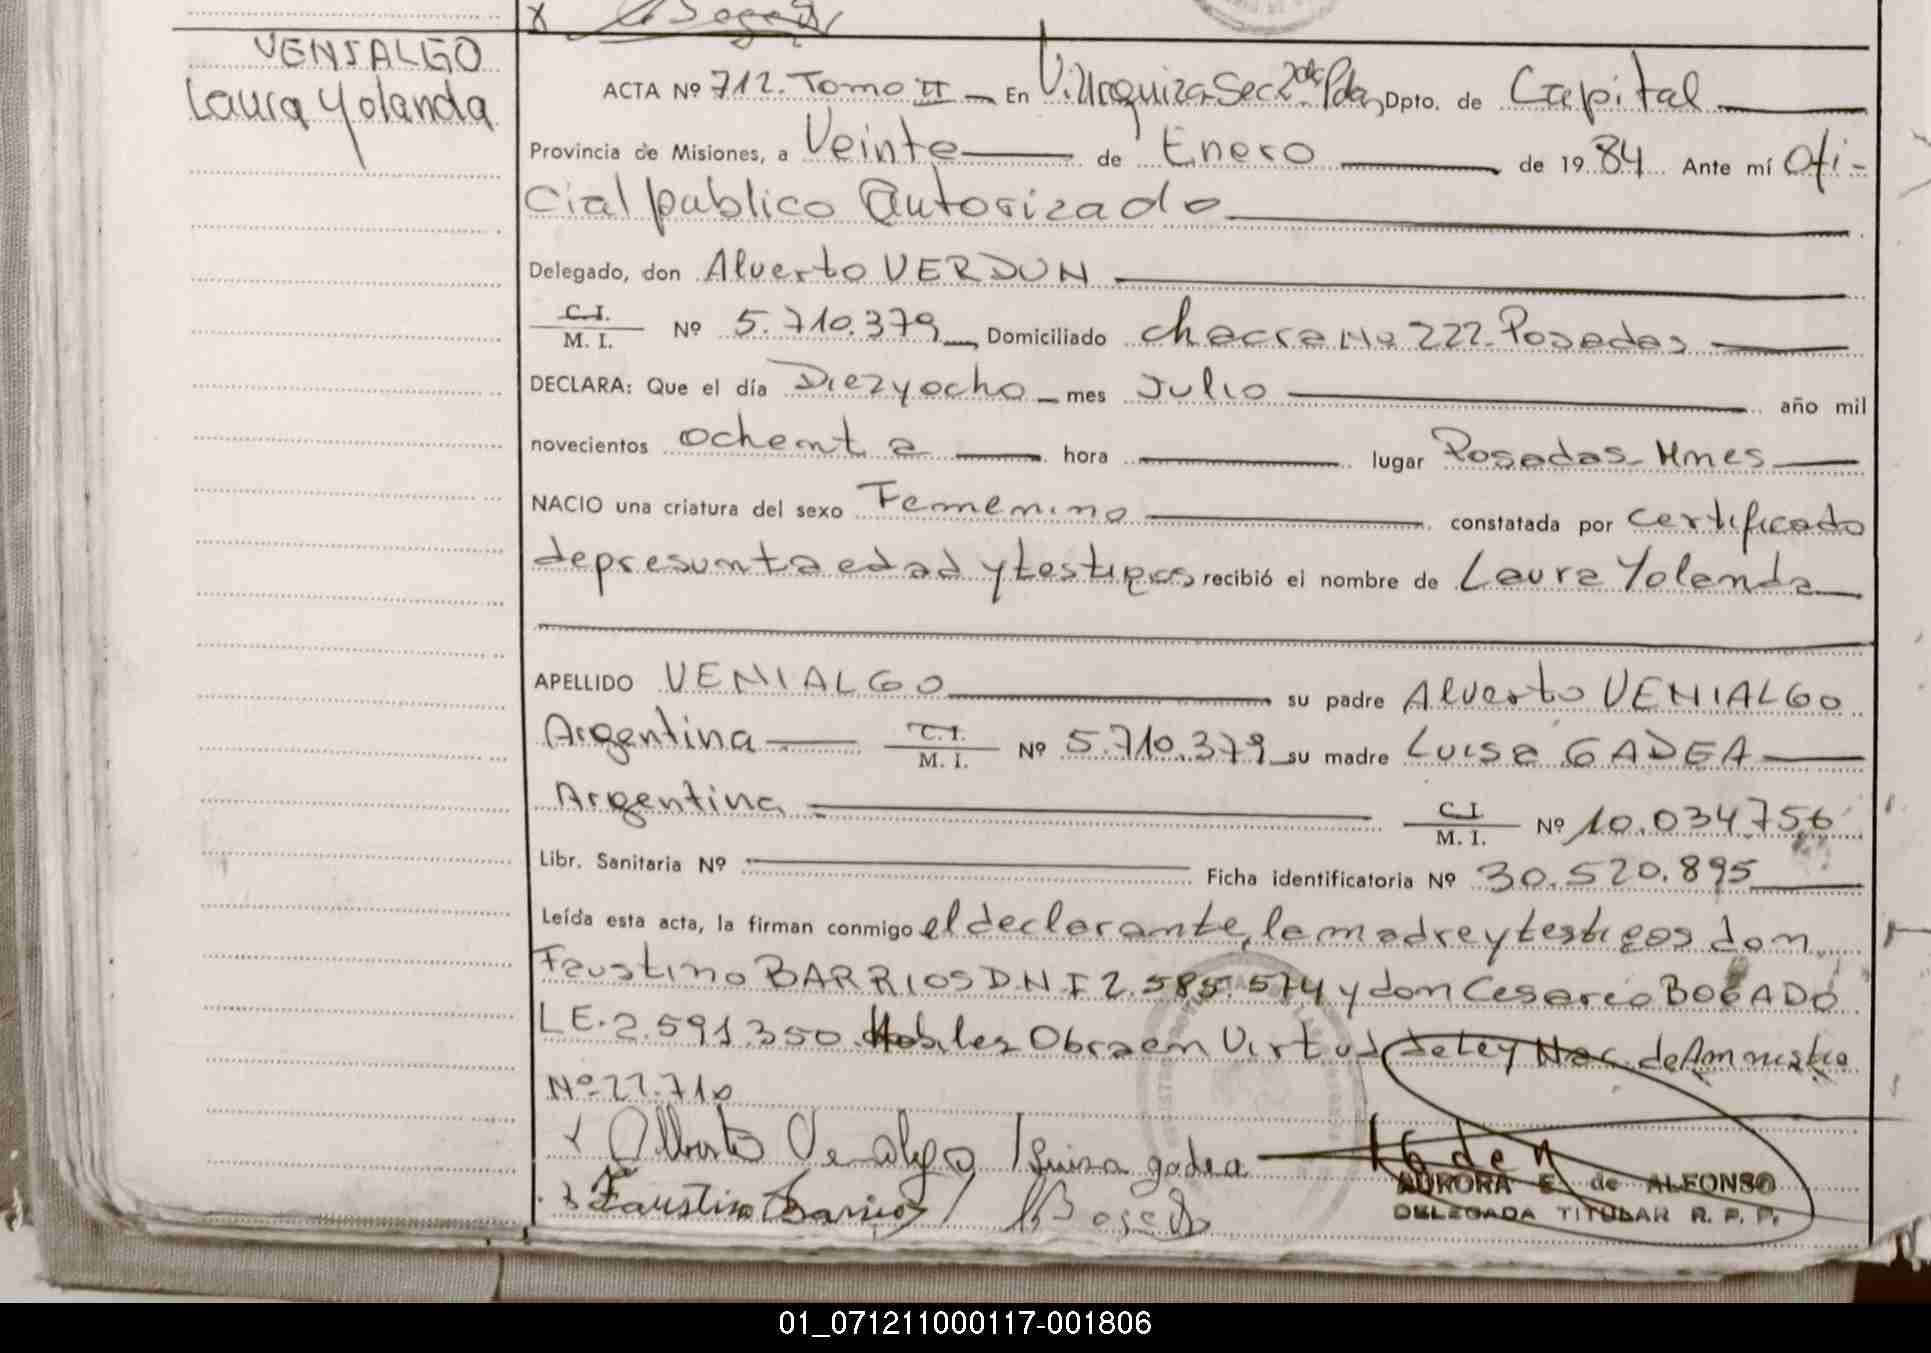 VENIALGO
Laura Yolanda
ACTA Nº 712. Tomo II En V. Urquiza Sec 2da Pdas, Dpto. de Capital
Provincia de Misiones, a Veinte de Enero de 1984 Ante mí Ofi-
cial publico Autorizado
Delegado, don Alverto VERDUN
C.I. M. I. Nº 5.710.379, Domiciliado chacra No 222. Posadas
DECLARA: Que el día Diezyocho mes Julio año mil
novecientos ochenta hora lugar Posadas - Mnes
NACIO una criatura del sexo Femenino constatada por certificado
de presunta edad y testigos recibió el nombre de Laura Yolanda
APELLIDO VENIALGO su padre Alverto VENIALGO
Argentina C.I. M. I. Nº 5.710.379 su madre Luisa GADEA
Argentina C.I. M. I. Nº 10.034.756
Libr. Sanitaria Nº Ficha identificatoria Nº 30.520.895
Leída esta acta, la firman conmigo el declarante, la madre y testigos don
Faustino BARRIOS D.N.I 2.585.574 y don Cesareo BOGADO
LE. 2.591.350. Habiles Obra en Virtud de Ley Nac. de Amnistia
Nº 22.710
x Alberto Venialgo / Luisa gadea
x Faustino Barrios /
AURORA E. de ALFONSO
DELEGADA TITULAR R. P. P.
01_071211000117-001806